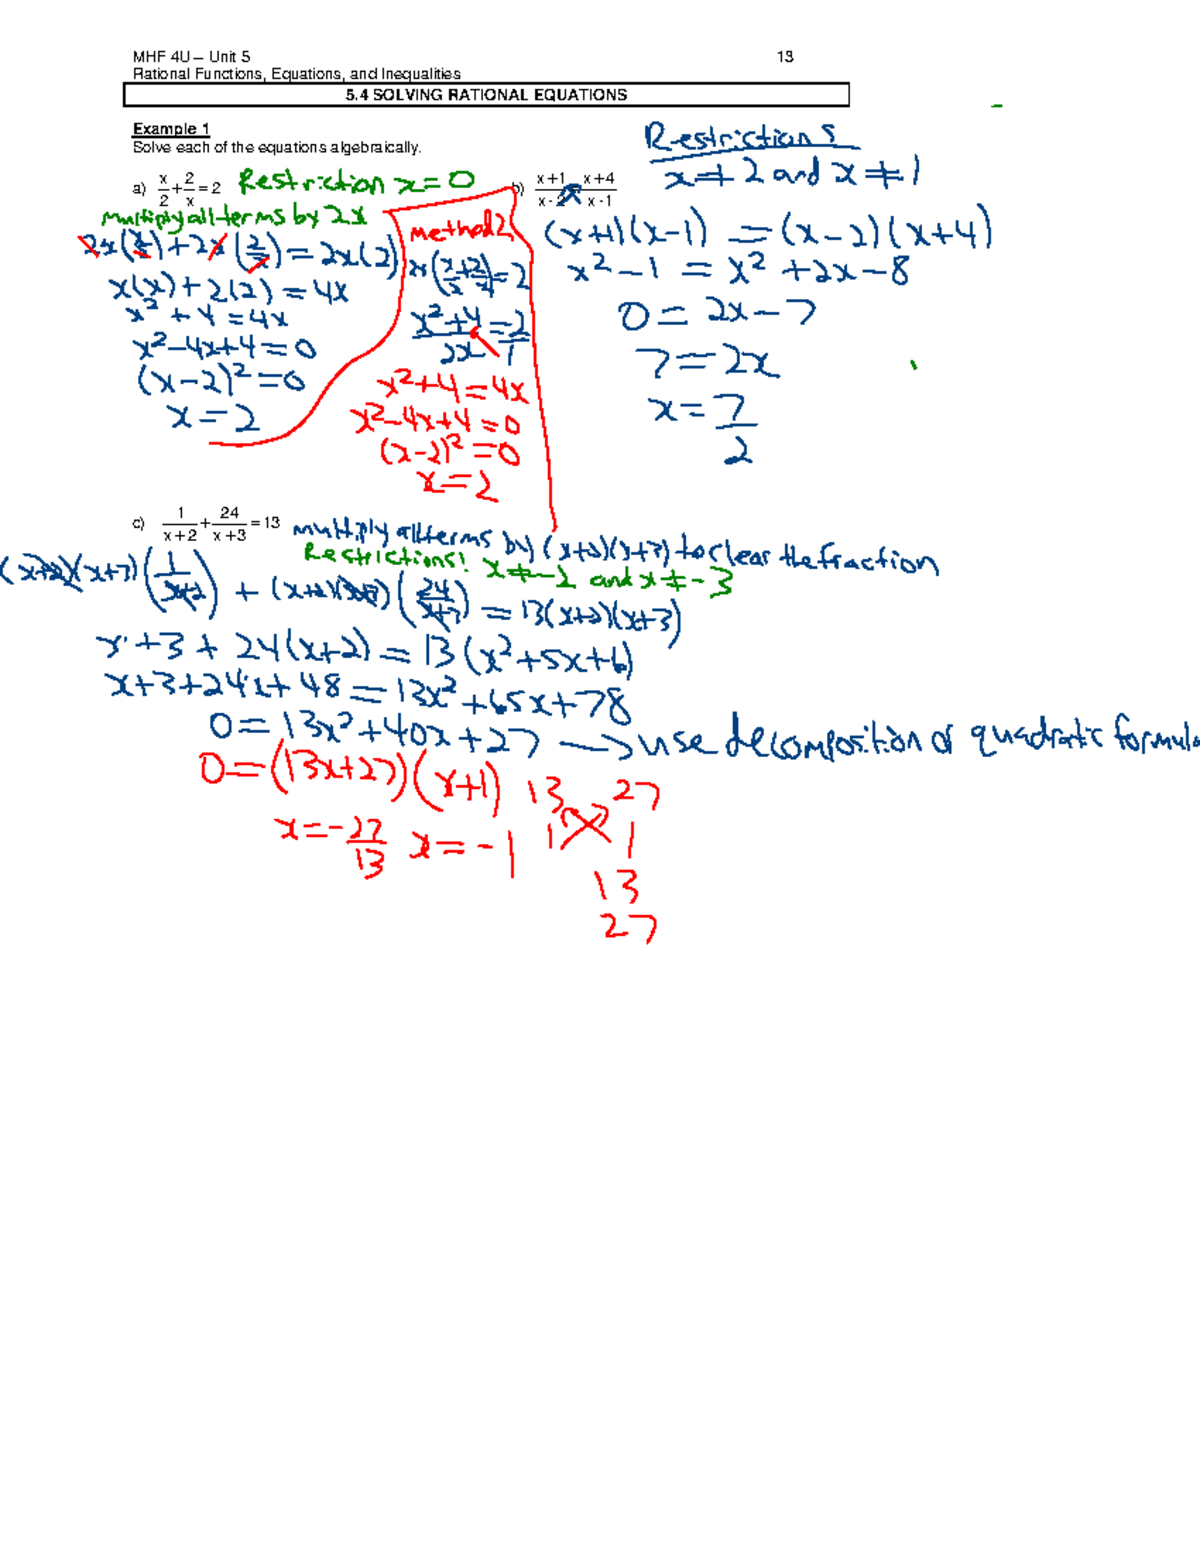 MHF 4U – Unit 5 13
Rational Functions, Equations, and Inequalities
5.4 SOLVING RATIONAL EQUATIONS
Example 1
Solve each of the equations algebraically.
a) x/2 + 2/x = 2 Restriction x = 0
multiply all terms by 2x
2x(x/2) + 2x(2/x) = 2x(2)
x(x) + 2(2) = 4x
x² + 4 = 4x
x² – 4x + 4 = 0
(x – 2)² = 0
x = 2
method 2
2x(x/2 + 2/x) = 2
x² + 4 / 2x = 2/1
x² + 4 = 4x
x² – 4x + 4 = 0
(x – 2)² = 0
x = 2
b) x + 1 / x - 2 = x + 4 / x - 1
Restrictions
x ≠ 2 and x ≠ 1
(x+1)(x–1) = (x–2)(x+4)
x² – 1 = x² + 2x – 8
0 = 2x – 7
7 = 2x
x = 7/2
c) 1 / x + 2 + 24 / x + 3 = 13 multiply all terms by (x+2)(x+3) to clear the fraction
Restrictions: x ≠ –2 and x ≠ –3
(x+2)(x+3)(1/x+2) + (x+2)(x+3)(24/x+3) = 13(x+2)(x+3)
x + 3 + 24(x+2) = 13(x² + 5x + 6)
x + 3 + 24x + 48 = 13x² + 65x + 78
0 = 13x² + 40x + 27 → use decomposition or quadratic formula
0 = (13x + 27)(x + 1)
x = –27/13 x = –1
13 27
1 1
13
27